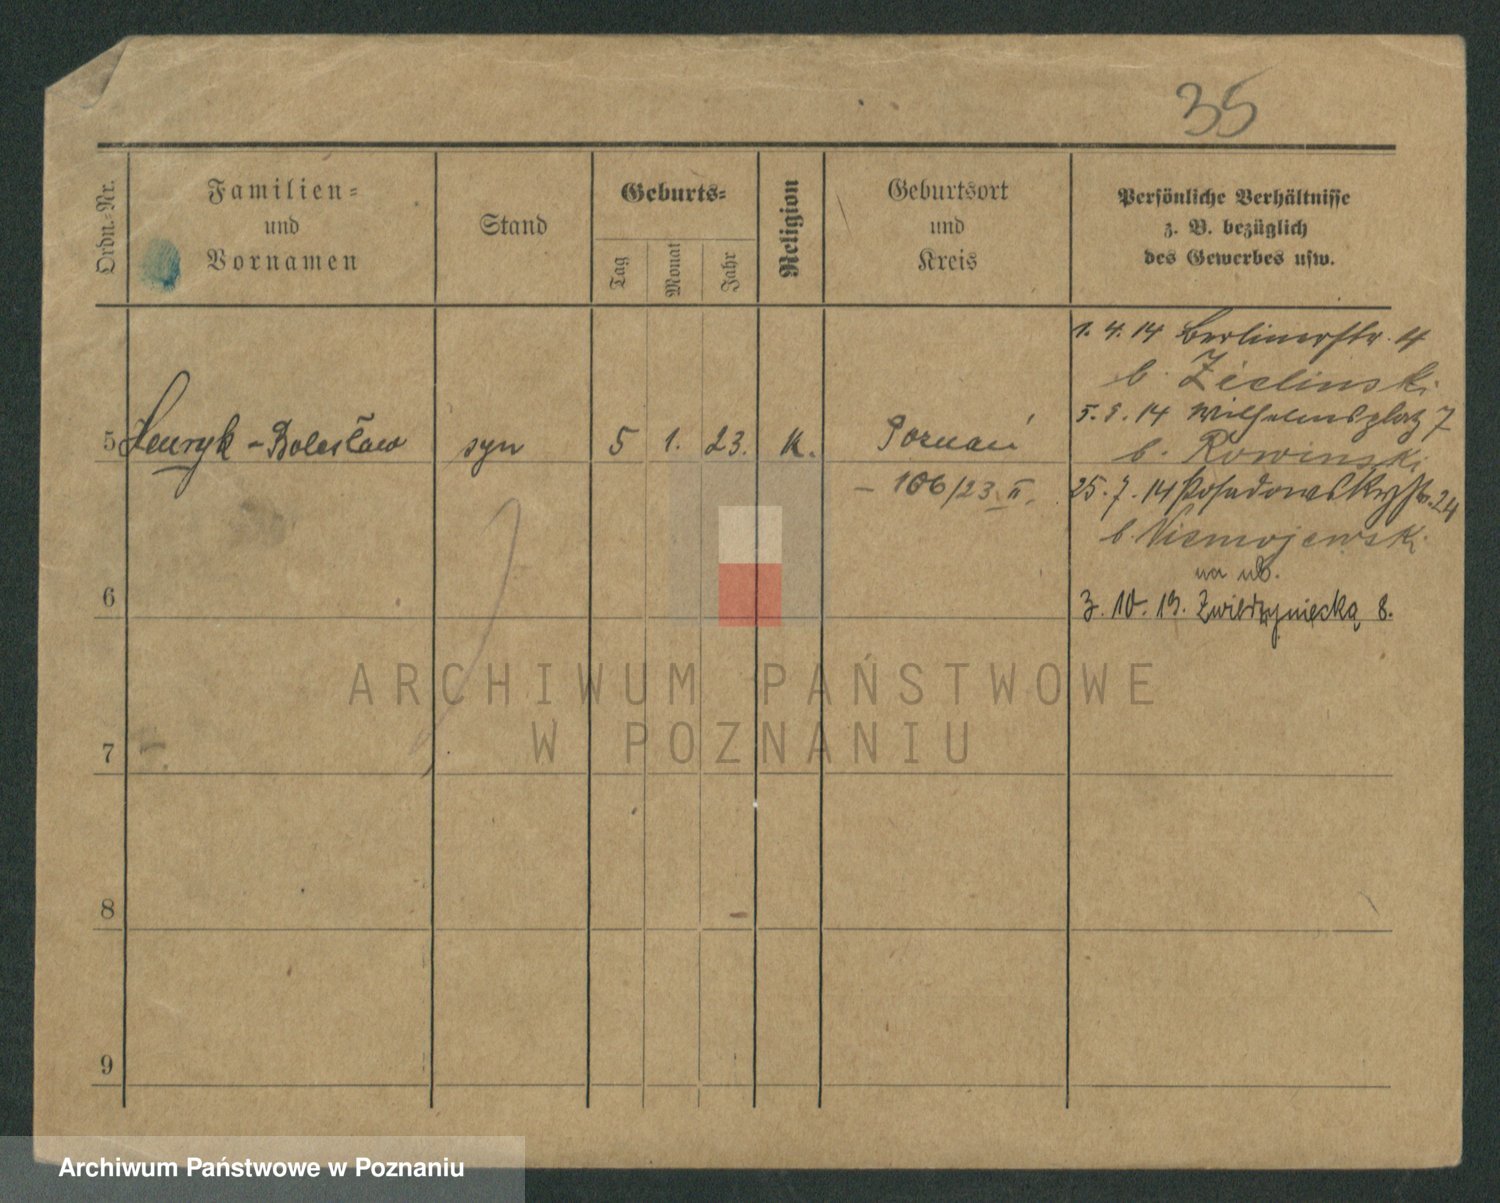 35
Ordn.-Nr.
Familien-
und
Vornamen
Stand
Geburts-
Tag
Monat
Jahr
Religion
Geburtsort
und
Kreis
Persönliche Verhältnisse
z. B. bezüglich
des Gewerbes usw.
1. 4. 14 Berlinerstr. 4
b. Zielinski
5. 5. 14 Wilhelmsplatz 7
b. Rowinski
5 Henryk-Bolesław syn 5 1. 23. K. Poznań
- 106/23. II.
25. 7. 14 Posadowskystr. 24
b. Niemojewski
na ub.
6
3. 10. 19. Zwierzyniecka 8.
7
8
9
ARCHIWUM PAŃSTWOWE
W POZNANIU
Archiwum Państwowe w Poznaniu